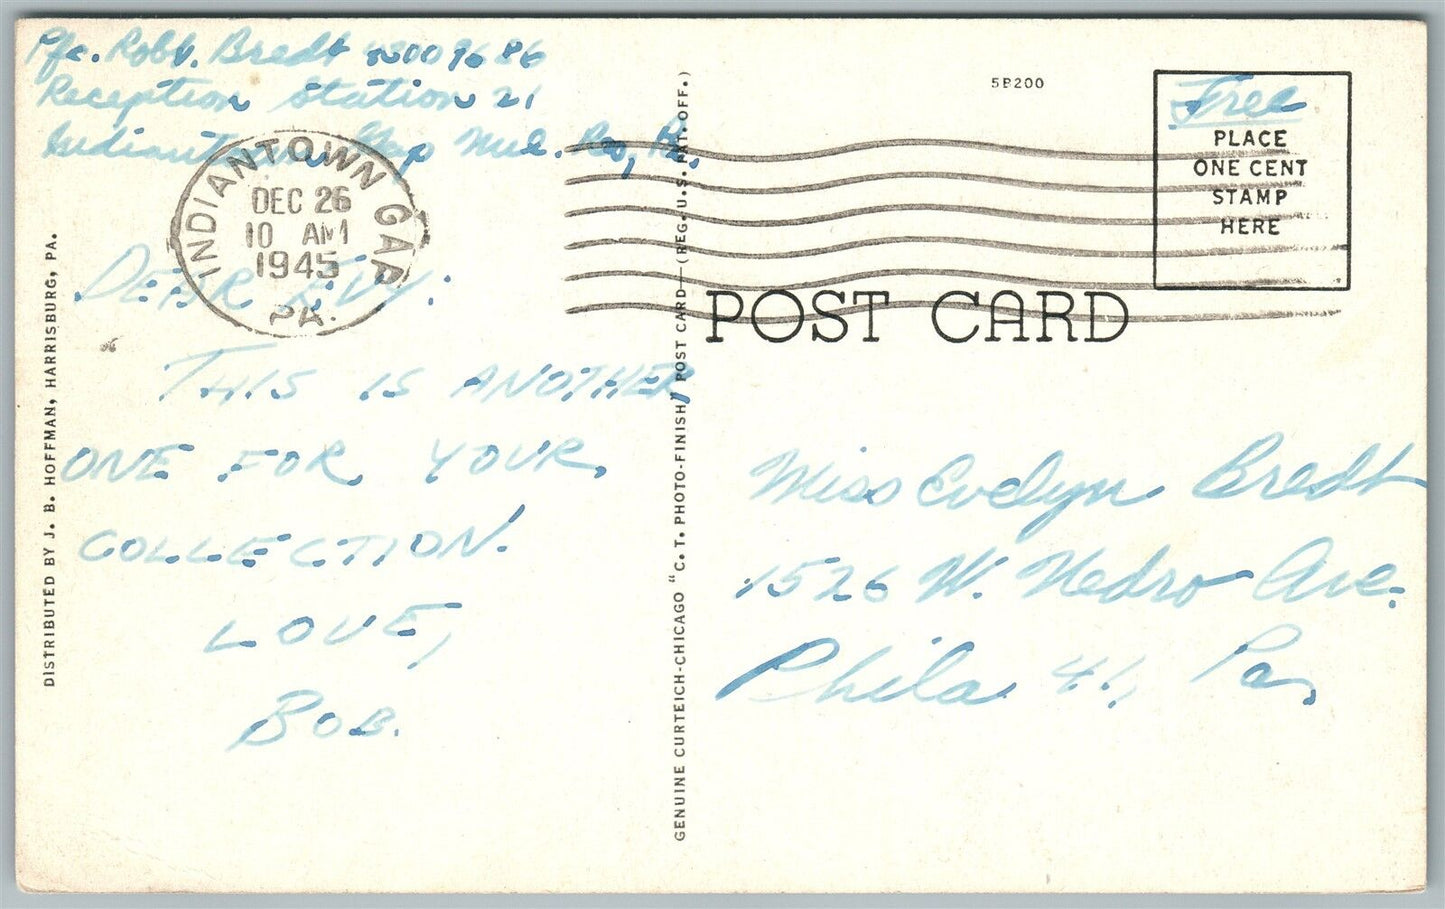 Pfc. Robt. Bredt
Reception Station 21
Indiantown Gap Mil. Res, Pa.
INDIANTOWN GAP
DEC 26
10 AM
1945
PA.
DEAR EVY:
THIS IS ANOTHER
ONE FOR YOUR
COLLECTION.
LOVE,
BOB.
DISTRIBUTED BY J. B. HOFFMAN, HARRISBURG, PA.
GENUINE CURTEICH-CHICAGO "C. T. PHOTO-FINISH" POST CARD—(REG. U. S. PAT. OFF.)
5B200
Free
PLACE
ONE CENT
STAMP
HERE
POST CARD
Miss Evelyn Bredt
1526 W. Nedro Ave.
Phila 41, Pa.